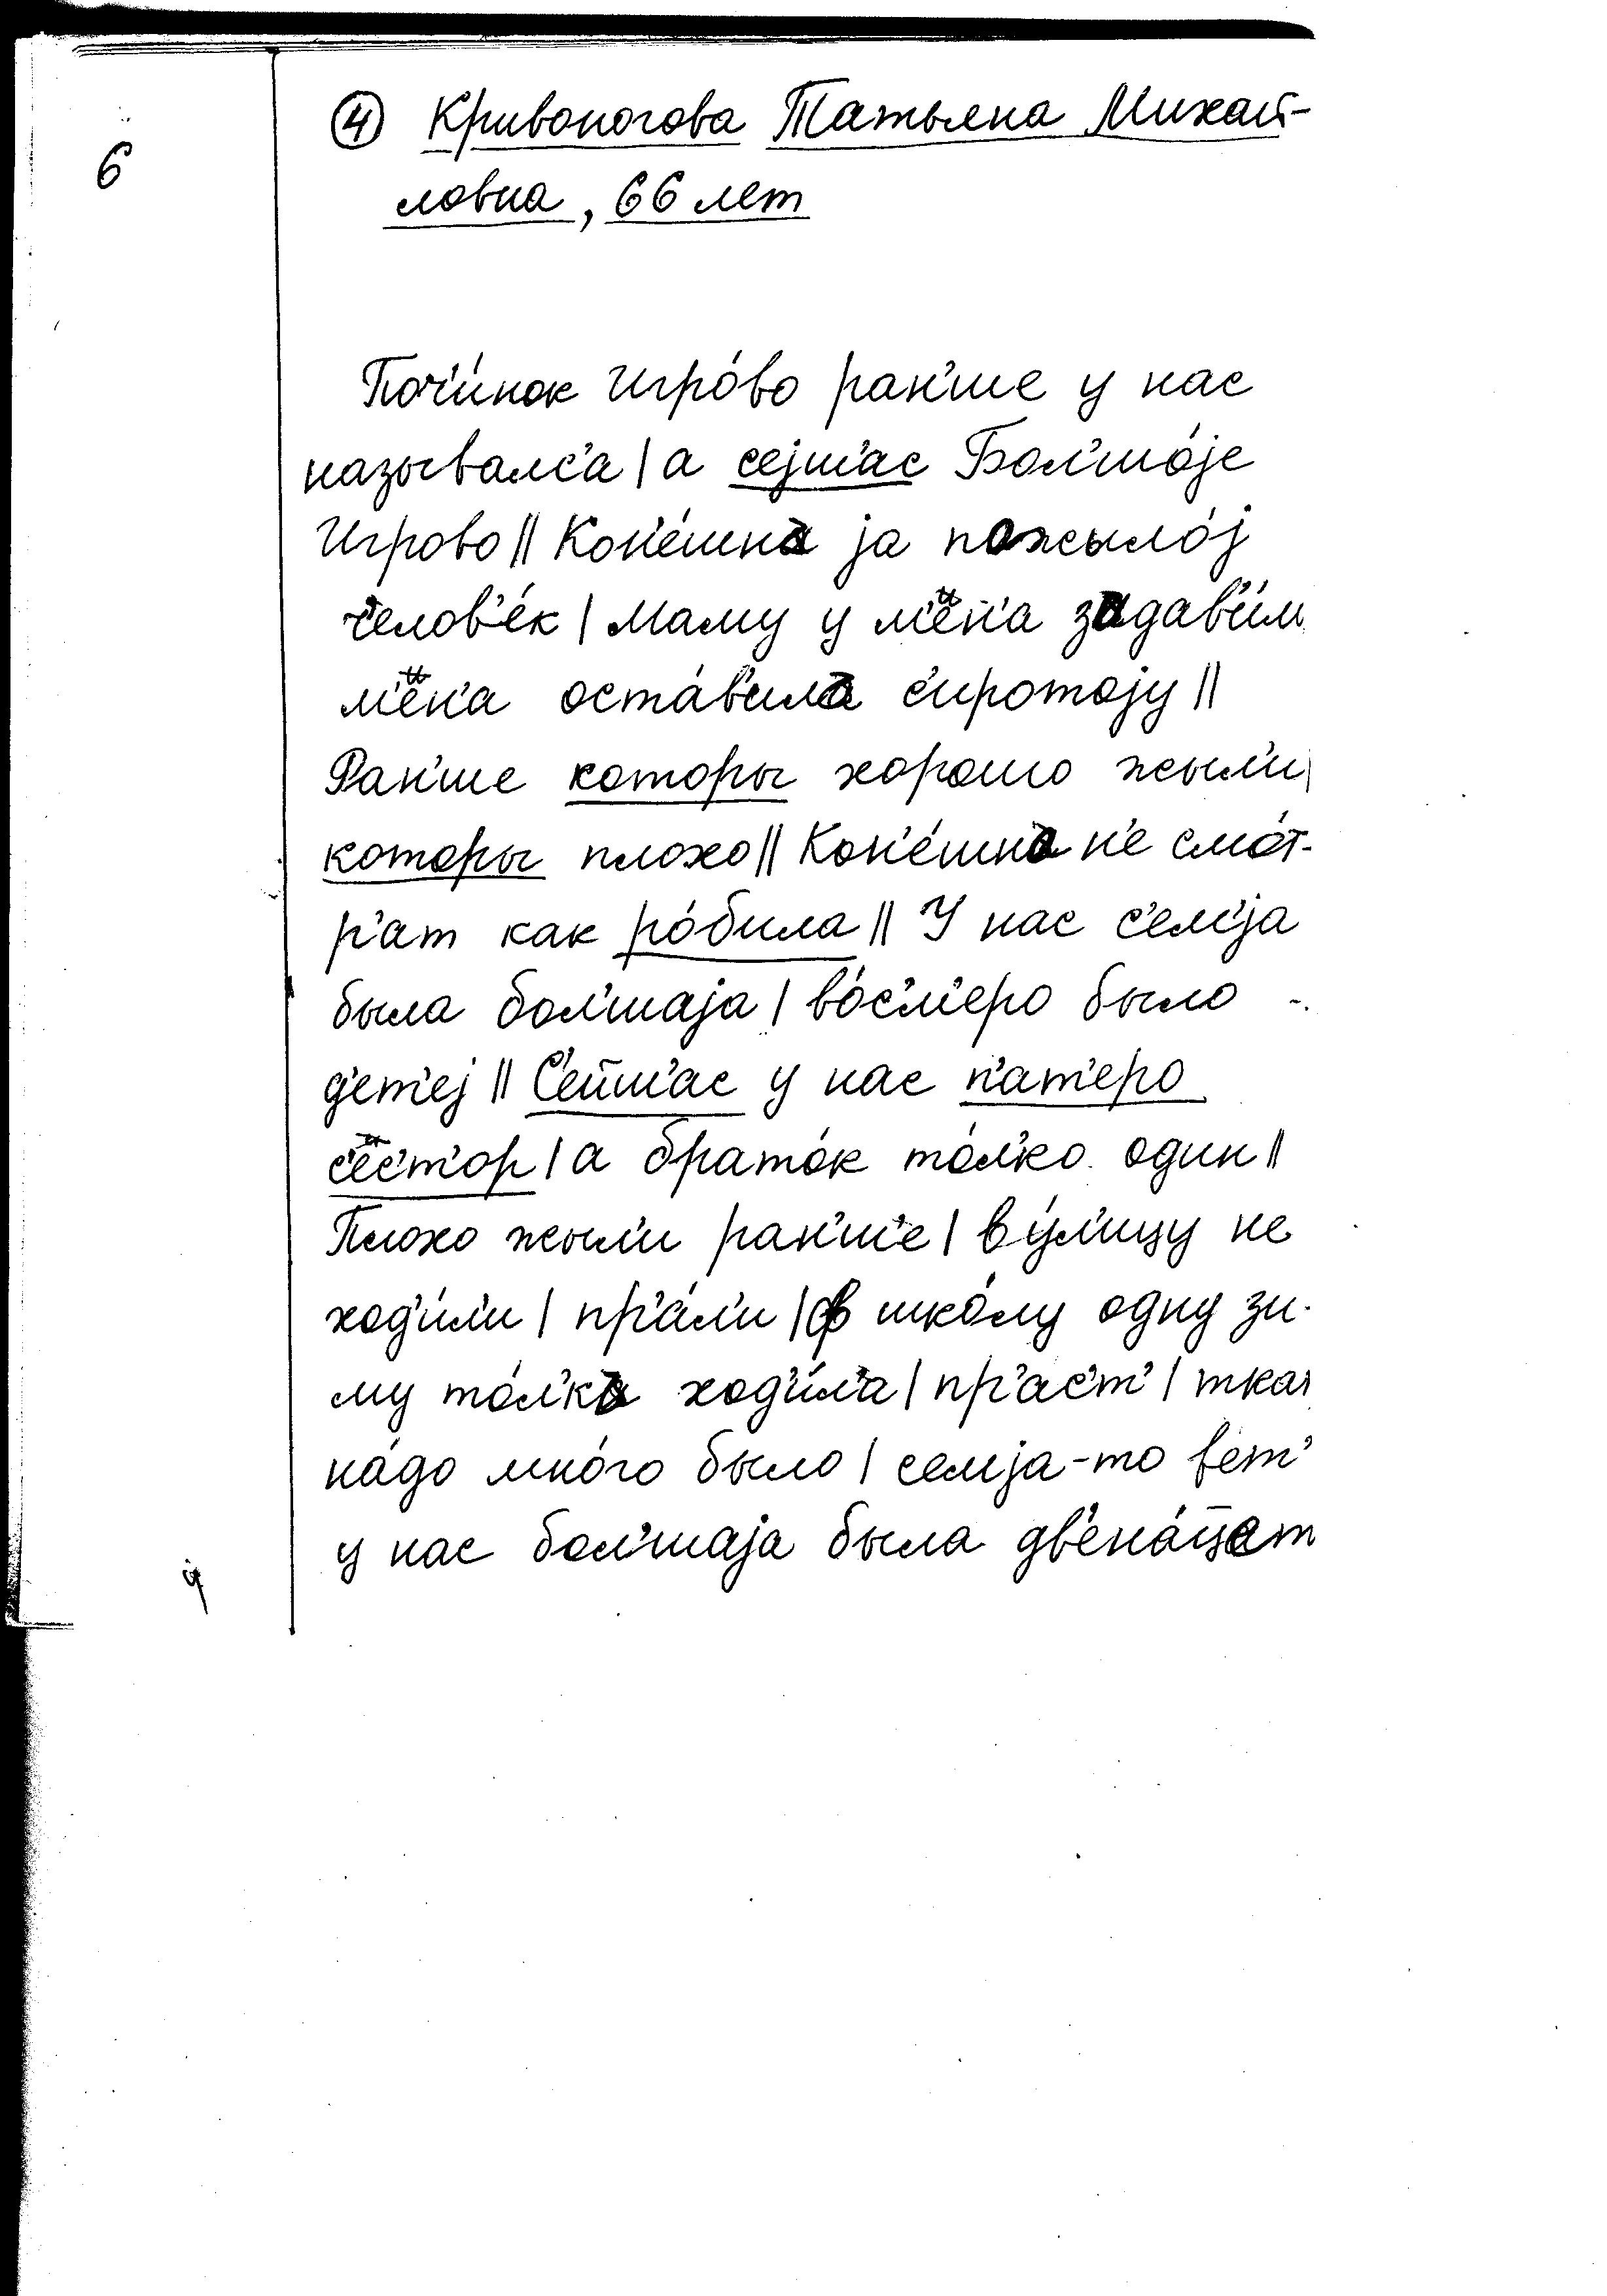 6
④ Кривоногова Татьяна Михай-
ловна, 66 лет
Поч'и́нок Игро́во ран'ше у нас
называлс'а | а сејш'ас Бол'шо́је
Игрово || Кон'е́шна ја пожыло́ј
ч'елов'е́к | Маму у м'ен'а задав'и́л
м'ен'а оста́в'ила с'иротоју ||
Ран'ше которы хорошо жыл'и |
которы плохо || Кон'е́шна н'е смо́т-
р'ат как ро́била || У нас с'ем'ја
была бол'шаја | во́с'м'еро было
д'ет'еј || С'ейш'ас у нас п'ат'еро
с'ес'т'ор | а брато́к то́л'ко один ||
Плохо жыл'и ран'ш'е | в у́л'ицу не
ход'и́л'и | пр'а́л'и | ф шко́лу одну зи-
му то́л'ка ход'и́л'а | пр'ас'т' | тка
на́до мно́го было | семја-то вет'
у нас бол'шаја была дв'ена́ц̄ат